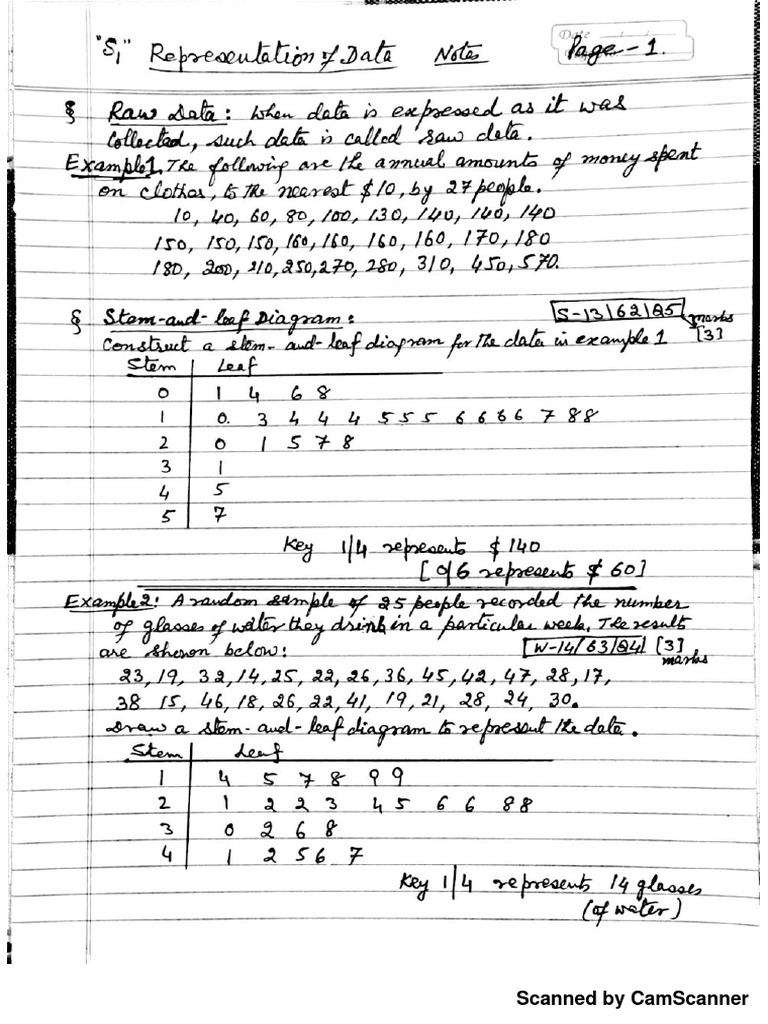 "S1" Representation of Data Notes
Date
Page-1.
§ Raw Data: When data is expressed as it was
collected, such data is called raw data.
Example1. The following are the annual amounts of money spent
on clothes, to the nearest $10, by 27 people.
10, 40, 60, 80, 100, 130, 140, 140, 140
150, 150, 150, 160, 160, 160, 160, 170, 180
180, 200, 210, 250, 270, 280, 310, 450, 570.
§ Stem-and-leaf Diagram: S-13/62/Q5 marks
Construct a stem-and-leaf diagram for the data in example 1 [3]
Stem | Leaf
0 | 1 4 6 8
1 | 0. 3 4 4 4 5 5 5 6 6 6 6 7 8 8
2 | 0 1 5 7 8
3 | 1
4 | 5
5 | 7
Key 1/4 represents $ 140
[0/6 represents $ 60]
Example2: A random sample of 25 people recorded the number
of glasses of water they drink in a particular week. The results
are shown below: W-14/63/Q4 [3]
marks
23, 19, 32, 14, 25, 22, 26, 36, 45, 42, 47, 28, 17,
38 15, 46, 18, 26, 22, 41, 19, 21, 28, 24, 30.
Draw a stem-and-leaf diagram to represent the data.
Stem | Leaf
1 | 4 5 7 8 9 9
2 | 1 2 2 3 4 5 6 6 8 8
3 | 0 2 6 8
4 | 1 2 5 6 7
Key 1/4 represents 14 glasses
(of water)
Scanned by CamScanner